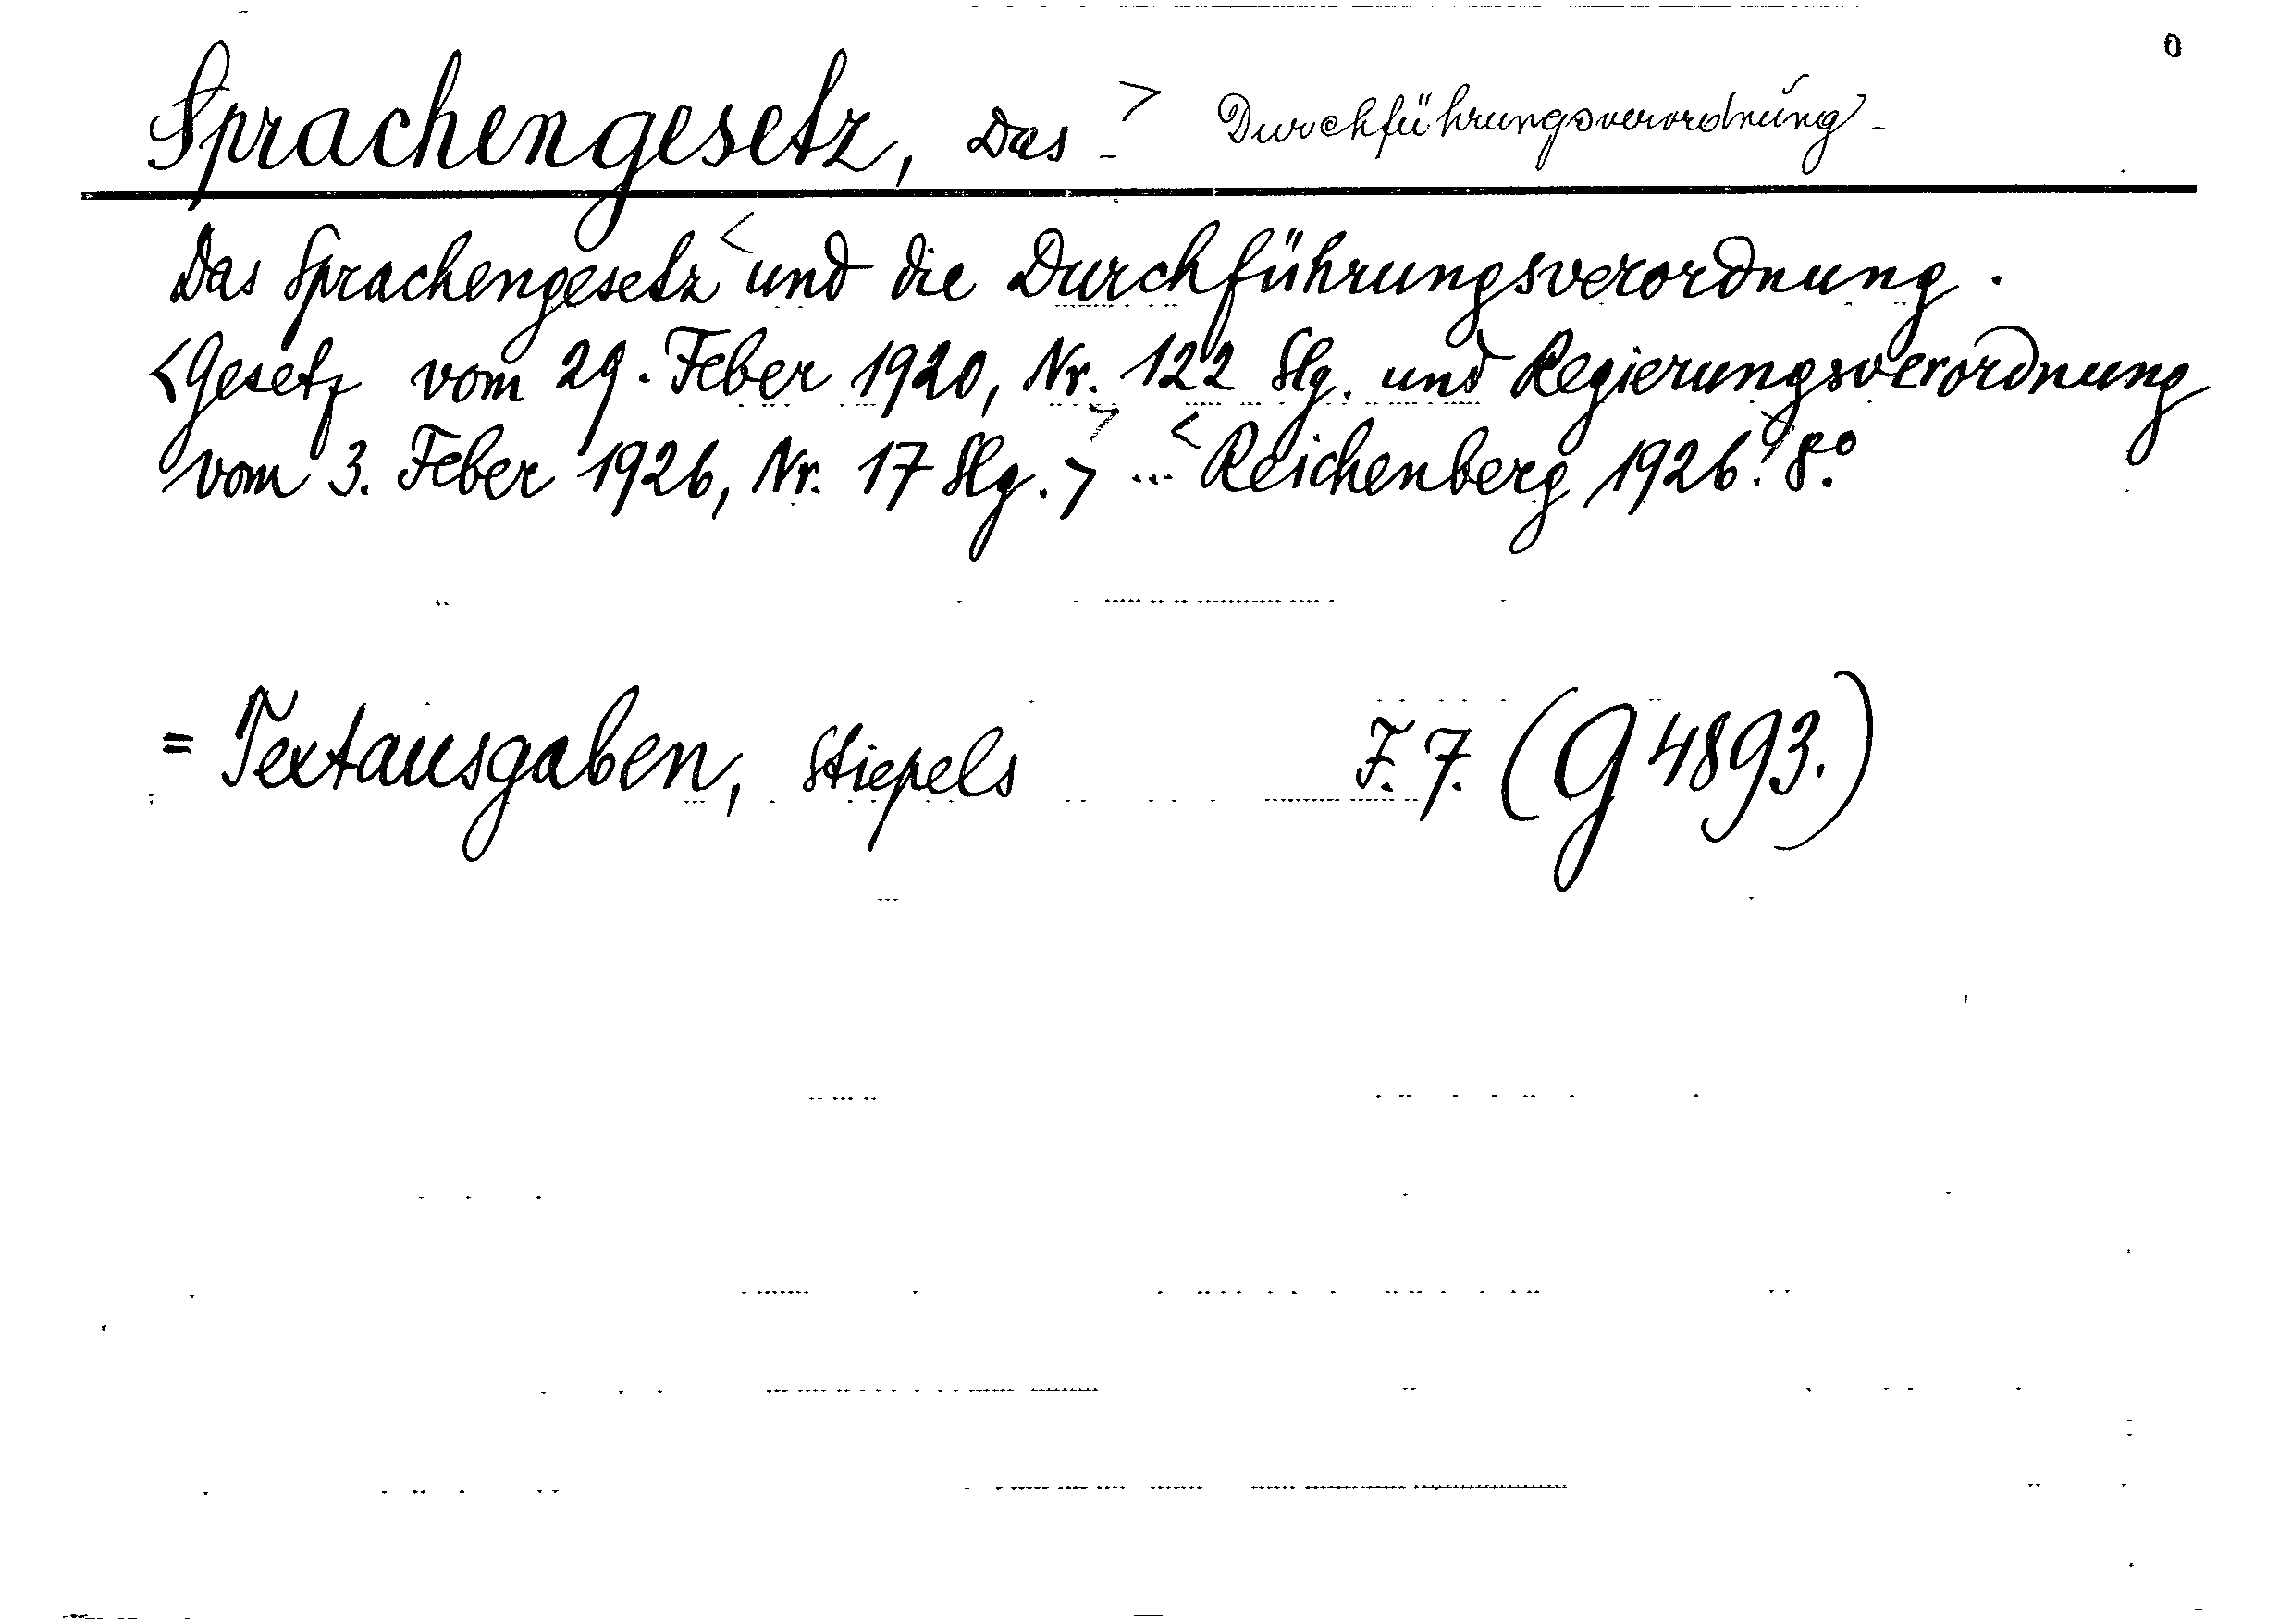 0
Sprachengesetz, Das - > Durchführungsverordnung -
Das Sprachengesetz < und die Durchführungsverordnung.
<Gesetz vom 29. Feber 1920, Nr. 122 Slg. und Regierungsverordnung
vom 3. Feber 1926, Nr. 17 Slg. > > ... < Reichenberg 1926. > 8.°
= Textausgaben, Stiepels F. 7. (G 4893.)